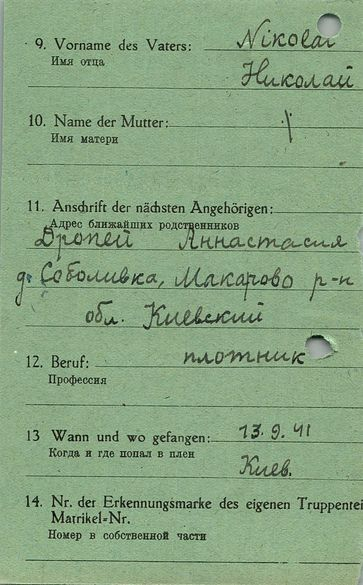 9. Vorname des Vaters: Nikolai
Имя отца
Николай
10. Name der Mutter:
Имя матери
11. Anschrift der nächsten Angehörigen:
Адрес ближайших родственников
Дропей Аннастасия
д. Соболивка, Макарово р-н
обл. Киевский
12. Beruf: плотник
Профессия
13 Wann und wo gefangen: 13.9.41
Когда и где попал в плен
Киев.
14. Nr. der Erkennungsmarke des eigenen Truppentei
Matrikel-Nr.
Номер в собственной части